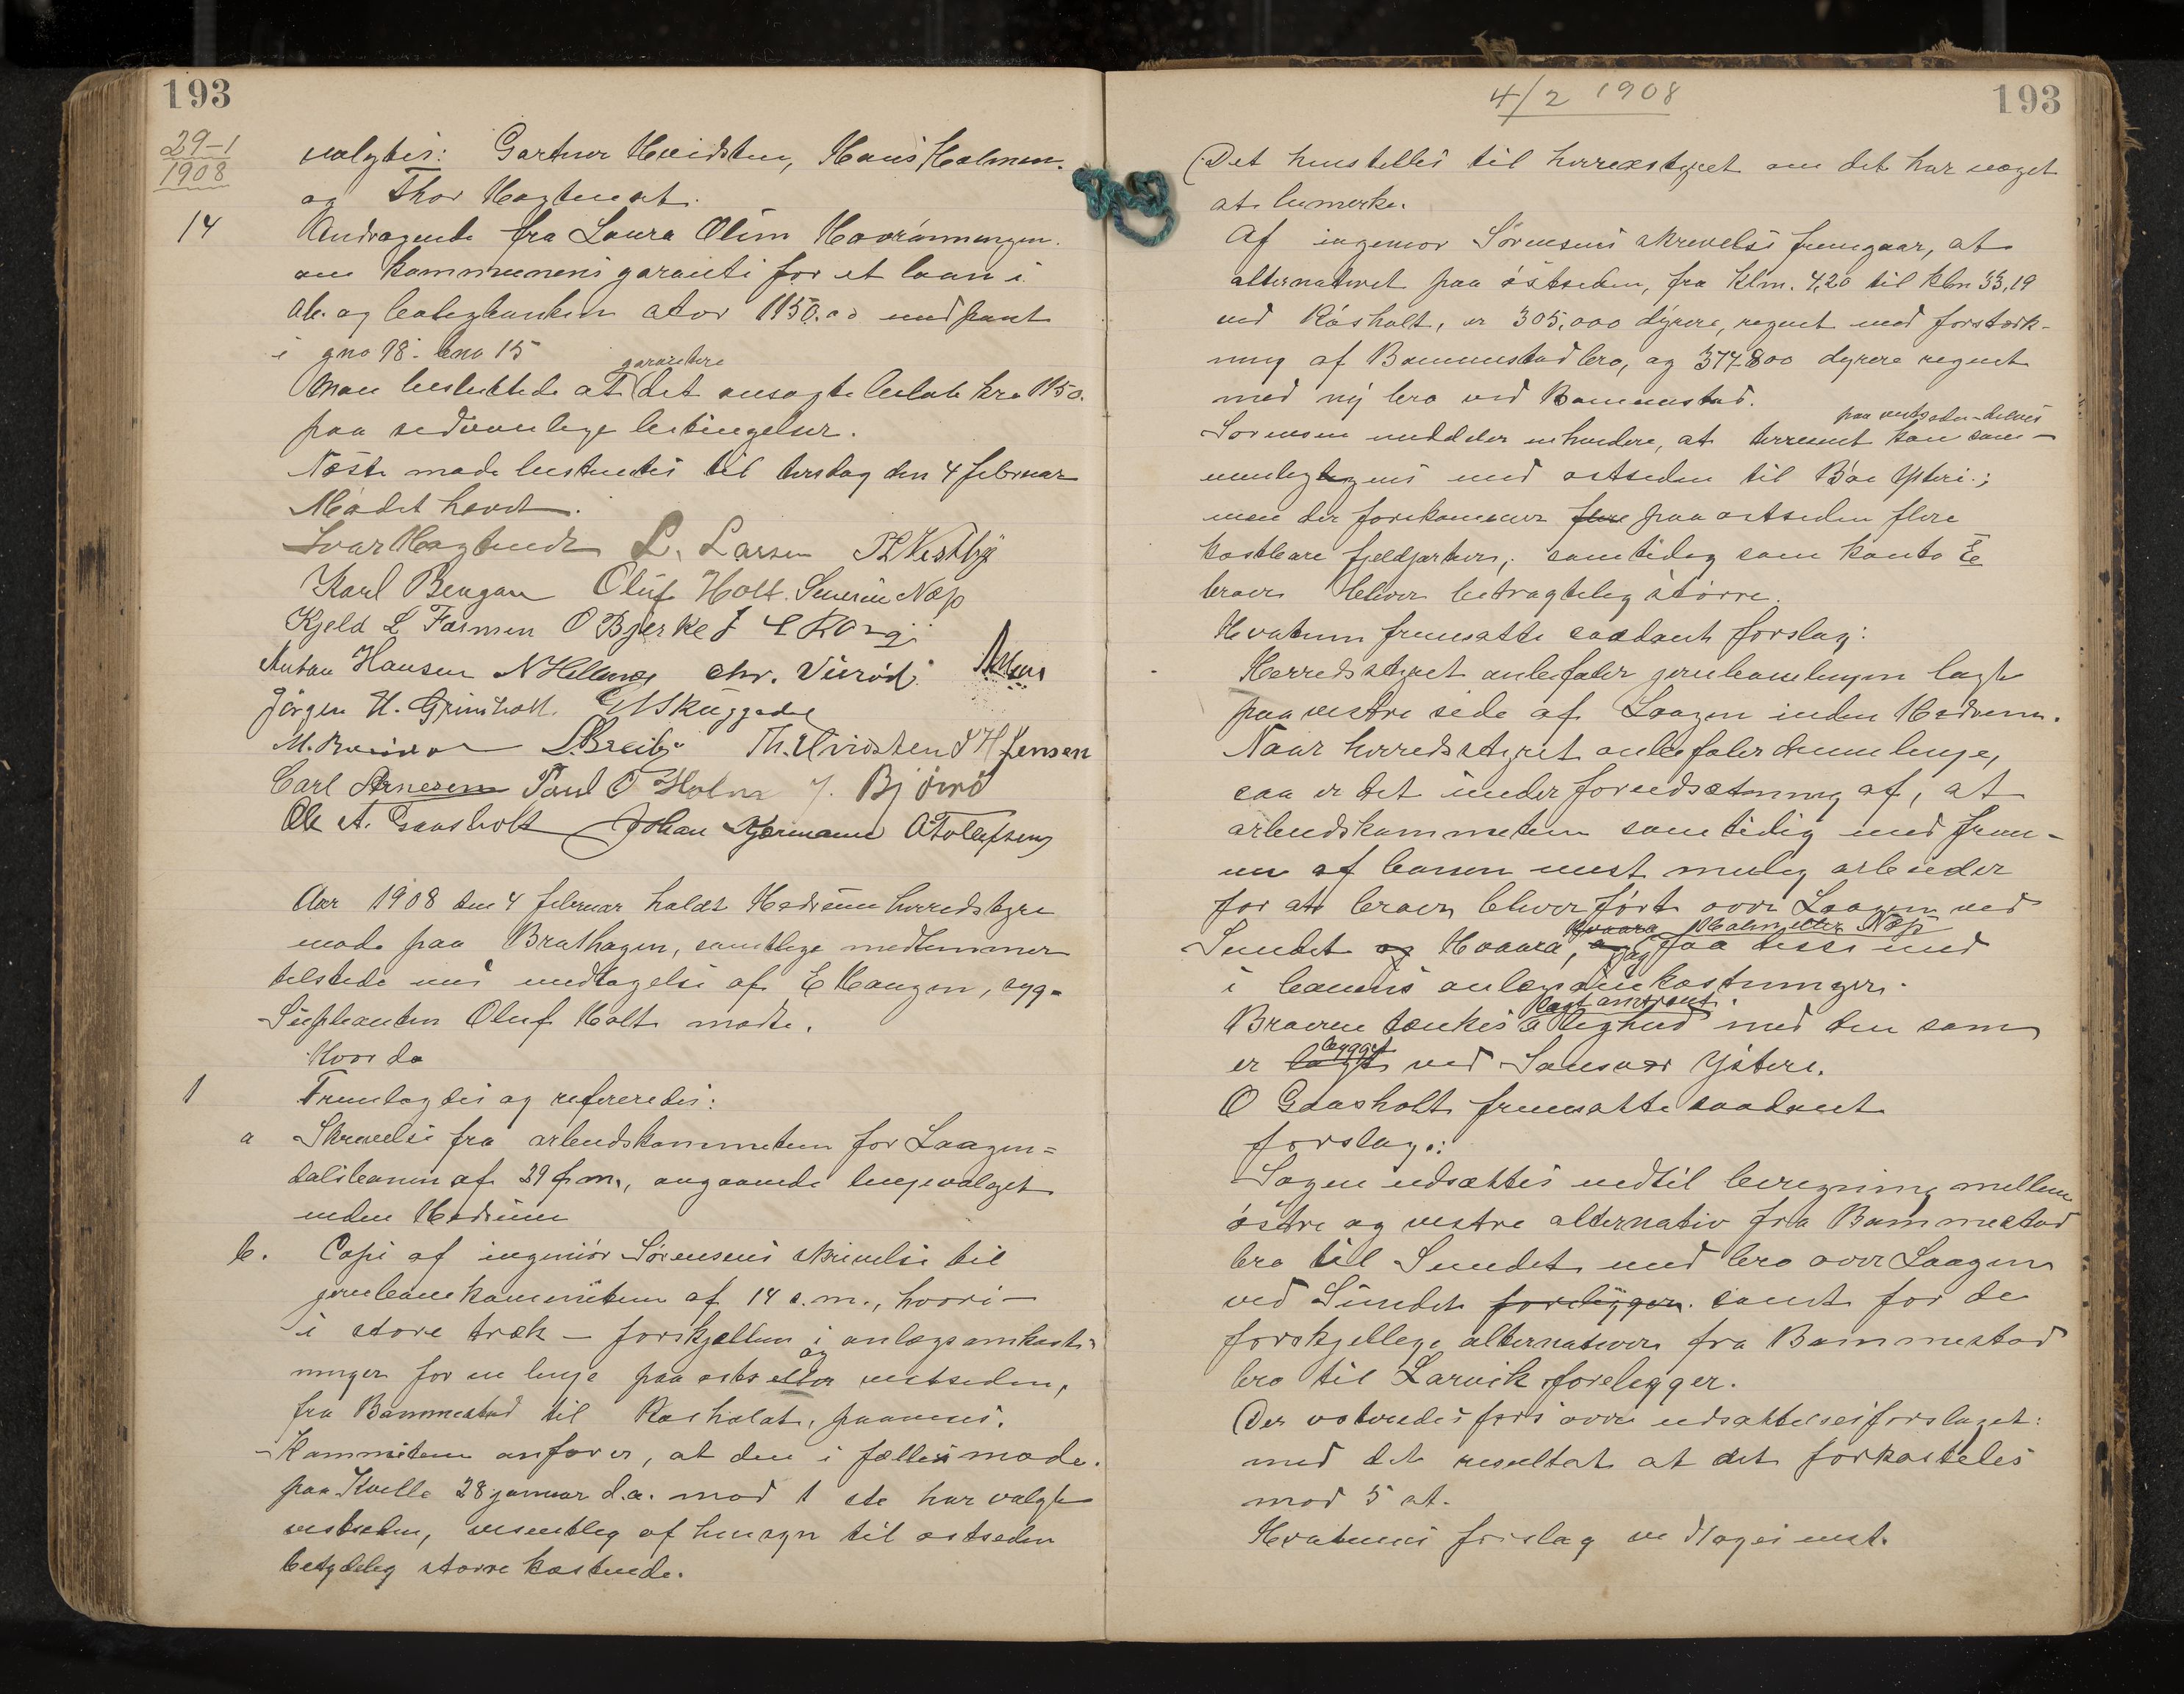 193
29-1
1908
valgtes: Gartner Hvidsten, Hans Holmen.
og Thor Hagtvedt.
14 Andragende fra Laura Olsen
om kommunens garanti for et laan i
Ab. og boligbanken stor 1150.00 med pant
i gno 98. bno 15
garantere
Man besluttede at det ansøgte beløb kr. 1150.
paa sedvanlige betingelser.
Næste møde bestemtes til tirsdag den 4 februar
Mødet hævet.
Ivar Hagtvedt L. Larsen P L Vestby
Karl Bergan Oluf Holt. Severin Næss
Kjeld L Farmen O Bjerke
Anton Hansen N Hellenes chr. Virød
Jørgen H. Grinholt. Skuggedal
M. L. Breiby Th. Hvidsten S H Jensen
Carl Arnesen Paul O Holm J. Bjørnø
Ole A. Gaasholt Johan Gjermann O Tollefsen
Aar 1908 den 4 februar holdt Hedrum herredstyre
møde paa Brathagen, samtlige medlemmer
tilstede med undtagelse af E Haugen, syg.
Suppleanten Oluf Holt mødte.
Hvor da
1 Fremlagdes og refereredes:
a Skrivelse fra arbeidskommiteen for Laagen=
dalsbanen af 29 f.m., angaaende linjevalget
inden Hedrum
b. Copi af ingeniør Sørensens skrivelse til
jernbanekommiteen af 14 s.m., hvori –
i store træk – forskjellen i anlægsomkost-
og
ninger for en linje paa øst eller vestsiden,
fra Bommestad til Kasholdt, paavises.
Kommiteen anfører, at den i fællesmøde
paa Kvelle 28 januar d.a. mod 1 ste har valgt
vestsiden, væsentlig af hensyn til østsiden
betydelig større kostende.
4/2 1908
193
Det henstilles til herredstyret om det har noget
at bemerke.
Af ingeniør Sørensens skrivelse fremgaar, at
alternativet paa østsiden, fra klm. 4,20 til klm 33,19
ved Kåsholt, er 305,000 dyrere, regnet med forstærk-
ning af Bommestad bro, og 377800 dyrere regnet
med ny bro ved Bommestad.
paa vestsiden delvis
Sørensen meddeler enhvidere, at terrænet kan sam-
menlignes med østsiden til Bøe Ysteri.;
men der forekommer flere paa østsiden flere
kostbare fjeldpartier, samtidig som konto E
broer bliver betragtelig større.
Hvatum fremsatte saadant forslag:
Herredsstyret anbefaler jernbanelinjen lagt
paa vestre side af Laagen inden Hedrum.
Naar herredsstyret anbefaler denne linje,
saa er det under forudsætning af, at
arbeidskommiteen samtidig med frem-
men af banen mest mulig arbeider
for at broer bliver ført over Laagen ved
Hvaara Holmen eller Næss
Sundet og Hvaara, og faa disse med
i banens anlægsomkostninger.
lagt omtrent
Broerne tænkes i lighed med den som
bygget
er lagt ved Sansvær Ysteri.
O Gaasholt fremsatte saadant
forslag.:
Sagen udsættes indtil beregning mellem
østre og vestre alternativ fra Bommestad
bro til Sundet med bro over Laagen
ved Sundet foreligger. samt for de
forskjellige alternativer fra Bommestad
bro til Larvik foreligger.
Der voteredes først over udsættelsesforslaget:
med det resultat at det forkastedes
mod 5 st.
Hvatums forslag vedtoges enst.